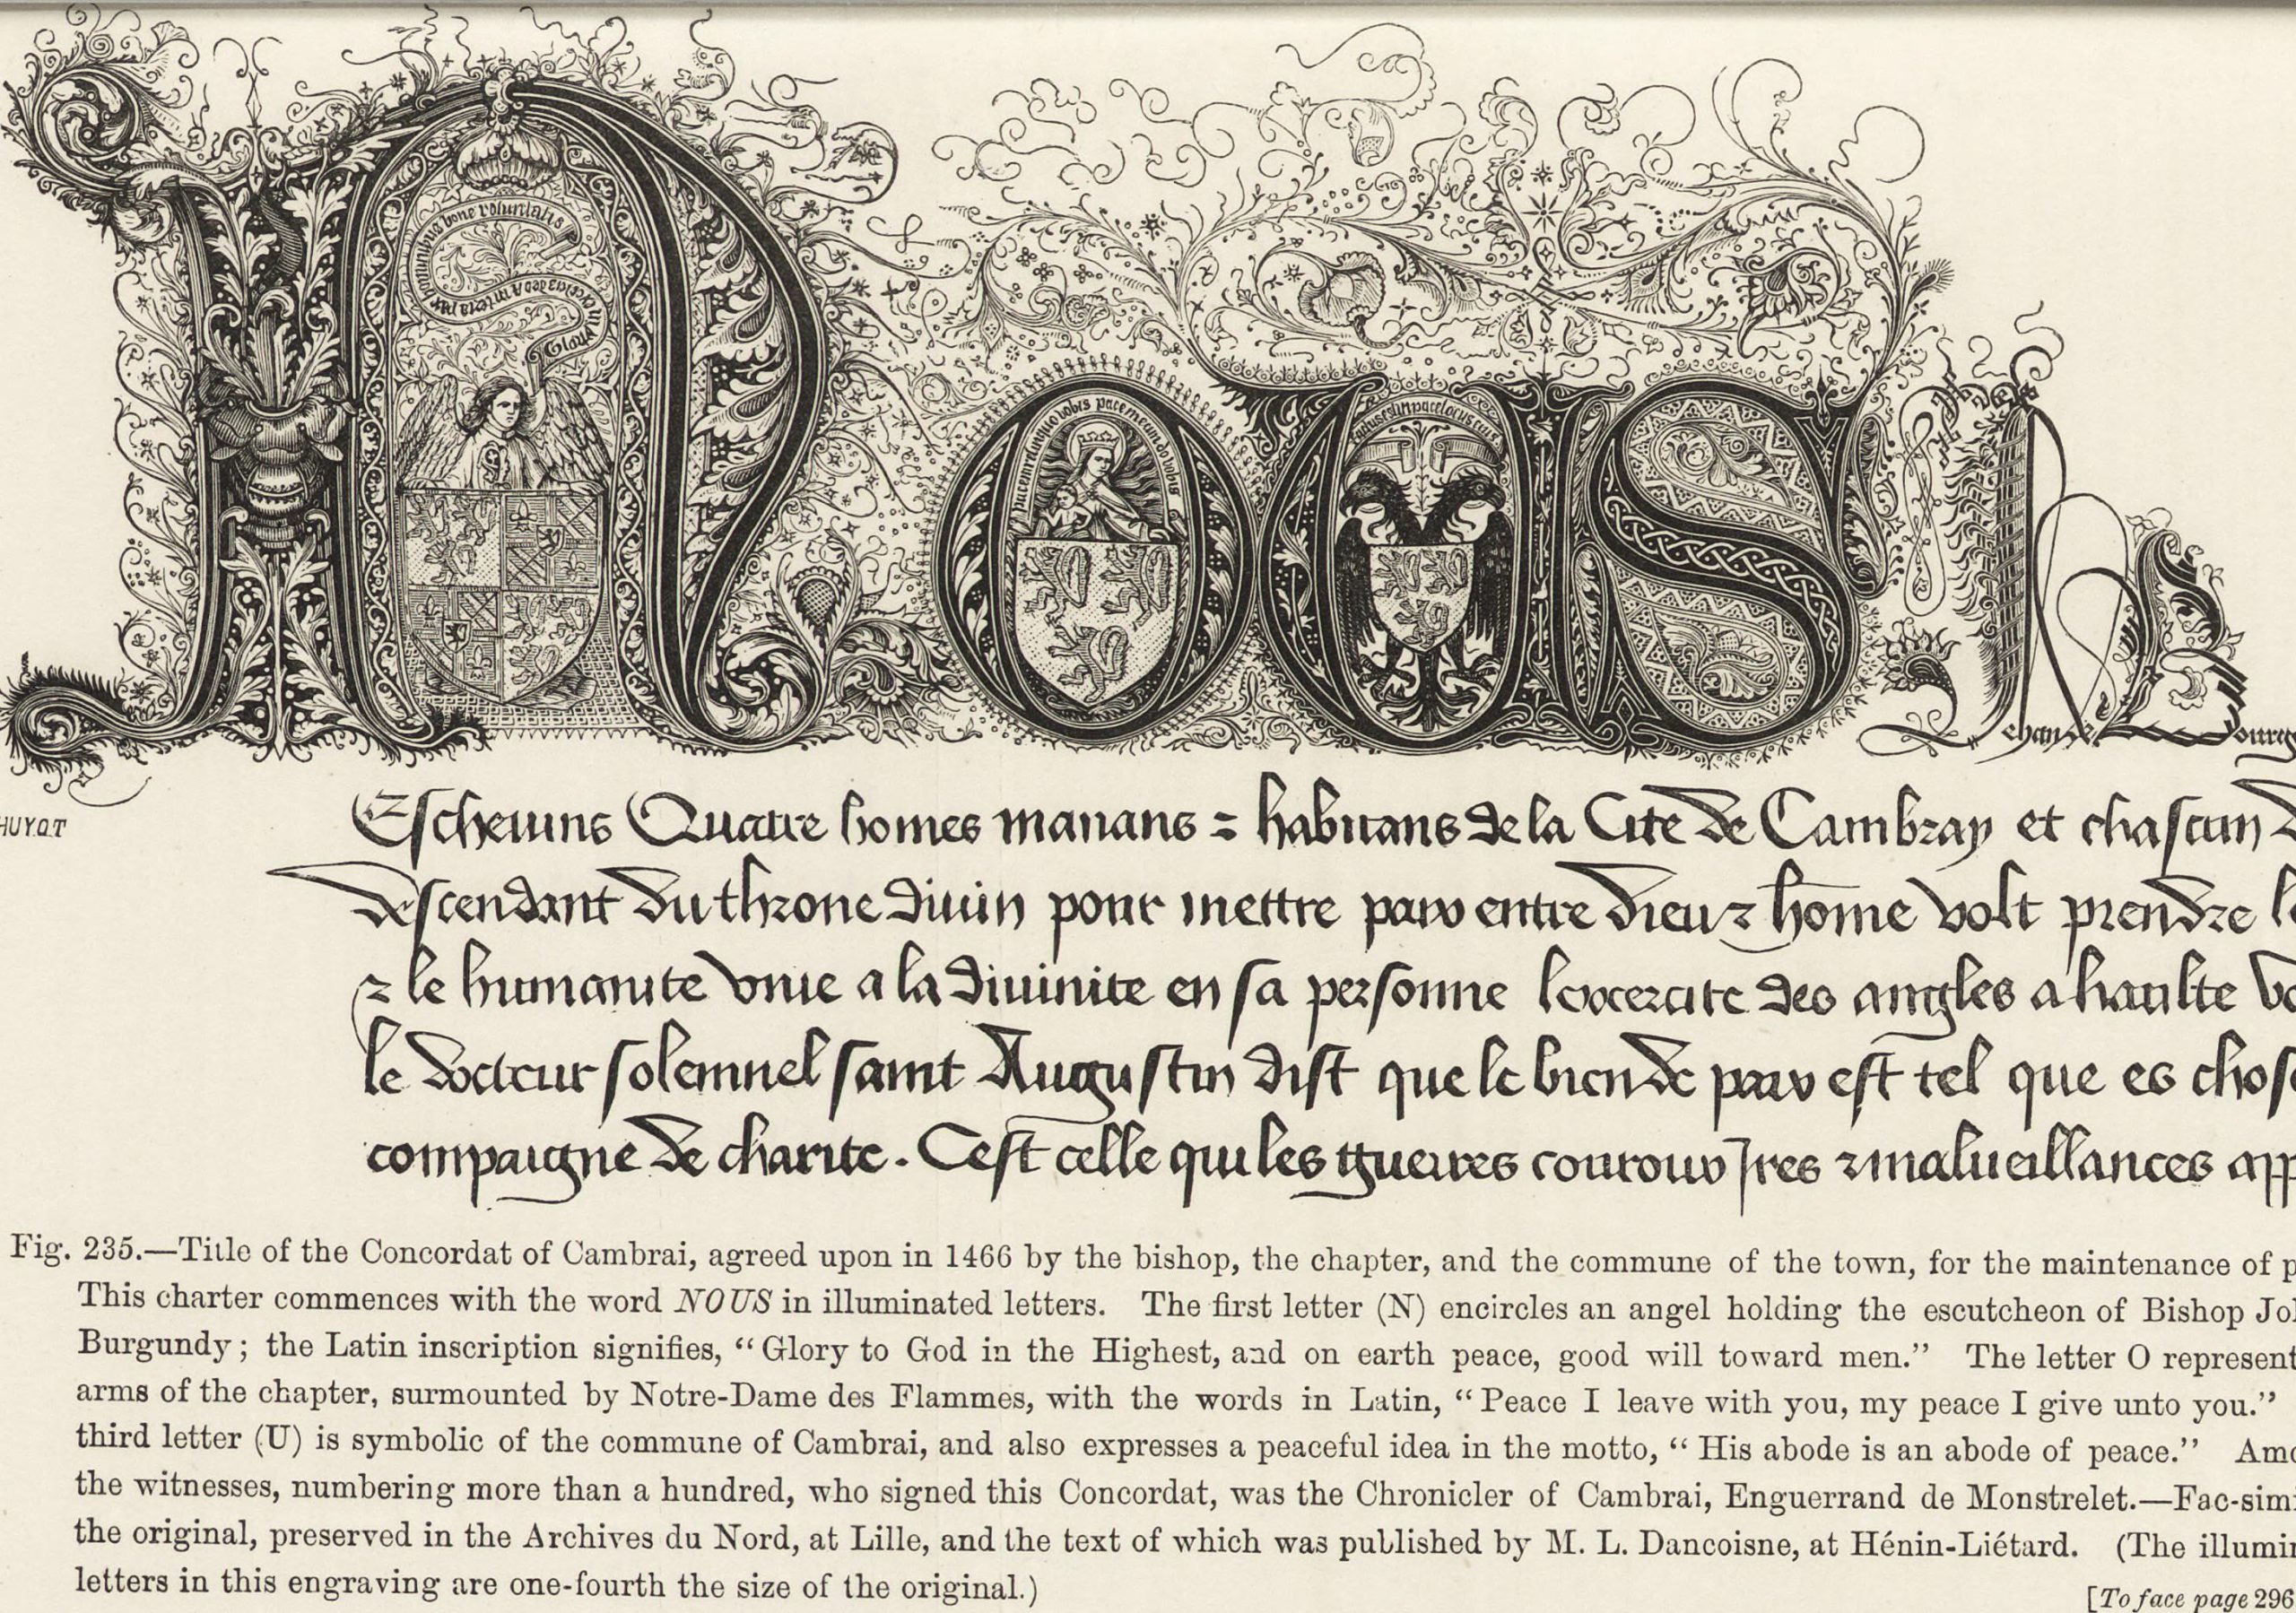 NOUS
hominibus bone voluntatis
Gloria in excelsis deo & in terra pax
pacem relinquo vobis pacem meam do vobis
factus est in pace locus eius
Jehan de Bourg
HUYOT
Escheuins Quatre homes manans ⁊ habitans de la Cite de Cambray et chascun d
descendant du throne diuin pour mettre paix entre dieu ⁊ home volt prendre
⁊ le humanite vnie a la diuinite en sa personne lexcercite des angles a haulte vo
le docteur solemnel saint Augustin dist que le bien de paix est tel que es chos
compaigne de charite. Cest celle qui les guerres couroux Ires ⁊ maluueillances app
Fig. 235.—Title of the Concordat of Cambrai, agreed upon in 1466 by the bishop, the chapter, and the commune of the town, for the maintenance of p
This charter commences with the word NOUS in illuminated letters. The first letter (N) encircles an angel holding the escutcheon of Bishop Joh
Burgundy; the Latin inscription signifies, “Glory to God in the Highest, and on earth peace, good will toward men.” The letter O represent
arms of the chapter, surmounted by Notre-Dame des Flammes, with the words in Latin, “Peace I leave with you, my peace I give unto you.”
third letter (U) is symbolic of the commune of Cambrai, and also expresses a peaceful idea in the motto, “His abode is an abode of peace.” Amo
the witnesses, numbering more than a hundred, who signed this Concordat, was the Chronicler of Cambrai, Enguerrand de Monstrelet.—Fac-simi
the original, preserved in the Archives du Nord, at Lille, and the text of which was published by M. L. Dancoisne, at Hénin-Liétard. (The illumin
letters in this engraving are one-fourth the size of the original.)
[To face page 296